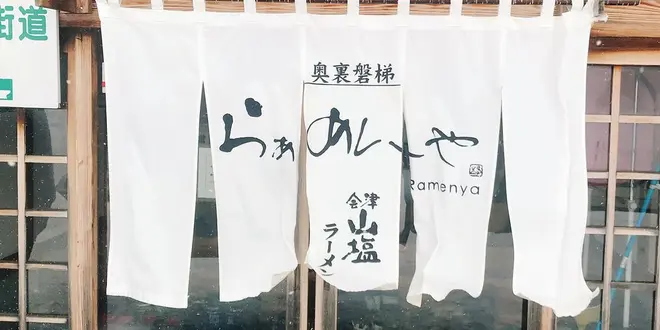 街道
奥裏磐梯
らぁめんや
Ramenya
会津
山塩
ラーメン